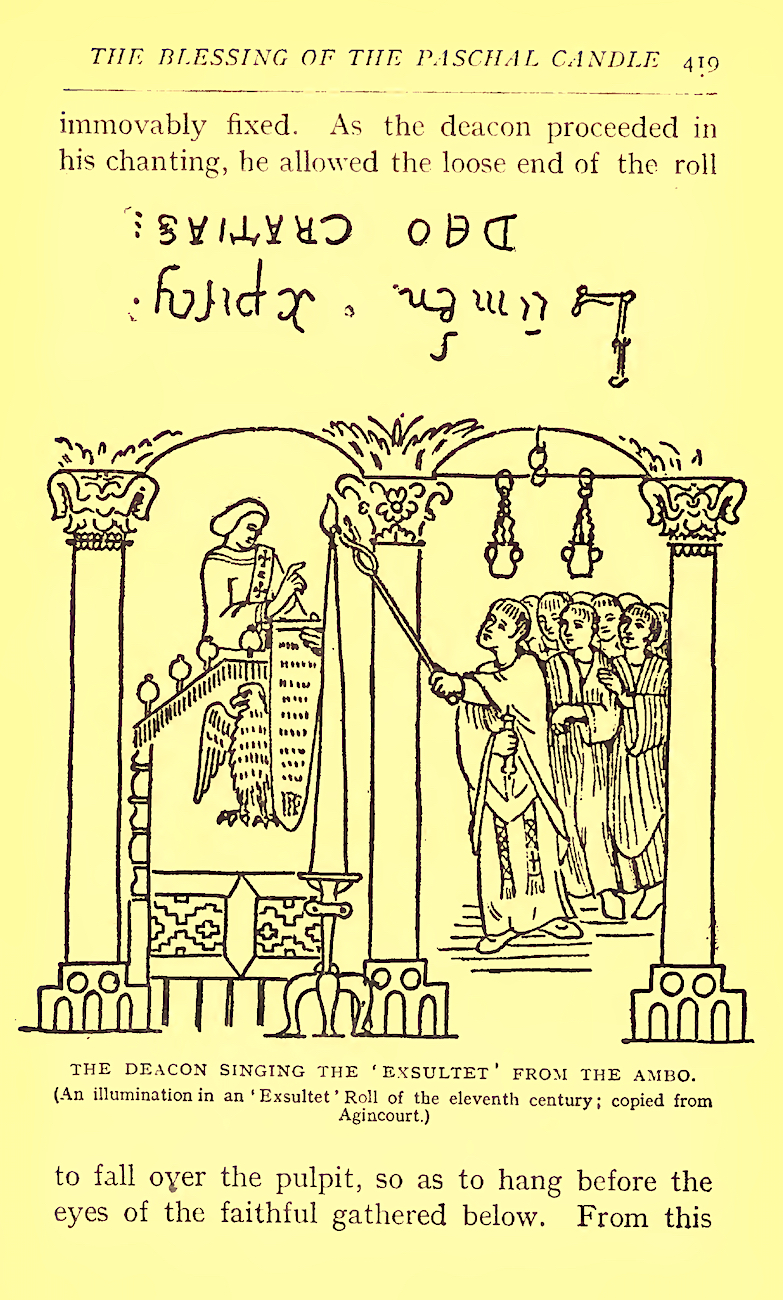 THE BLESSING OF THE PASCHAL CANDLE 419
immovably fixed. As the deacon proceeded in
his chanting, he allowed the loose end of the roll
Lumen.
DEO GRATIAS:
THE DEACON SINGING THE 'EXSULTET' FROM THE AMBO.
(An illumination in an 'Exsultet' Roll of the eleventh century; copied from
Agincourt.)
to fall over the pulpit, so as to hang before the
eyes of the faithful gathered below. From this